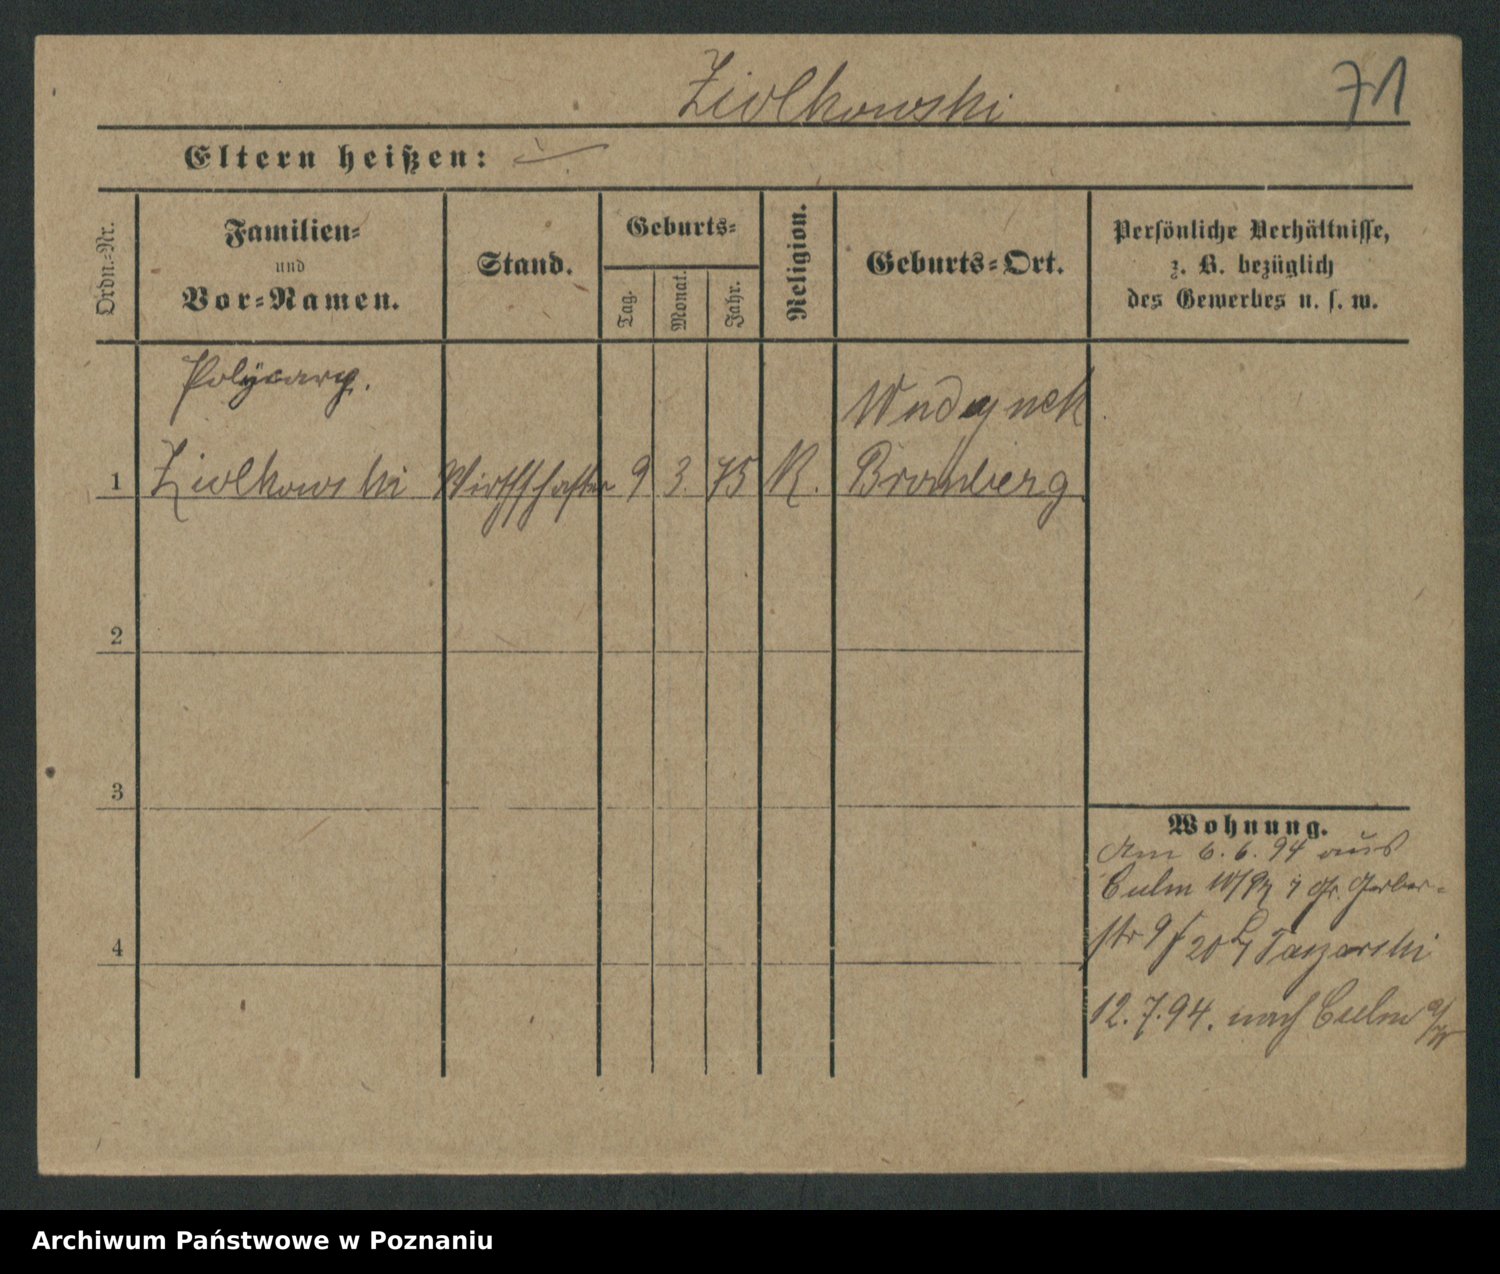 Ziolkowski 71
Eltern heißen:
Ordn.-Nr.
Familien-
und
Vor-Namen.
Stand.
Geburts-
Tag.
Monat.
Jahr.
Religion.
Geburts-Ort.
Persönliche Verhältnisse,
z. B. bezüglich
des Gewerbes u. s. w.
Polÿcarp.
1 Ziolkowski 9 3. 75 R. Bromberg
2
3
4
Wohnung.
Am 6.6.94 aus
Culm Gr. Gerber-
str 9
12.7.94. nach Culm
Archiwum Państwowe w Poznaniu